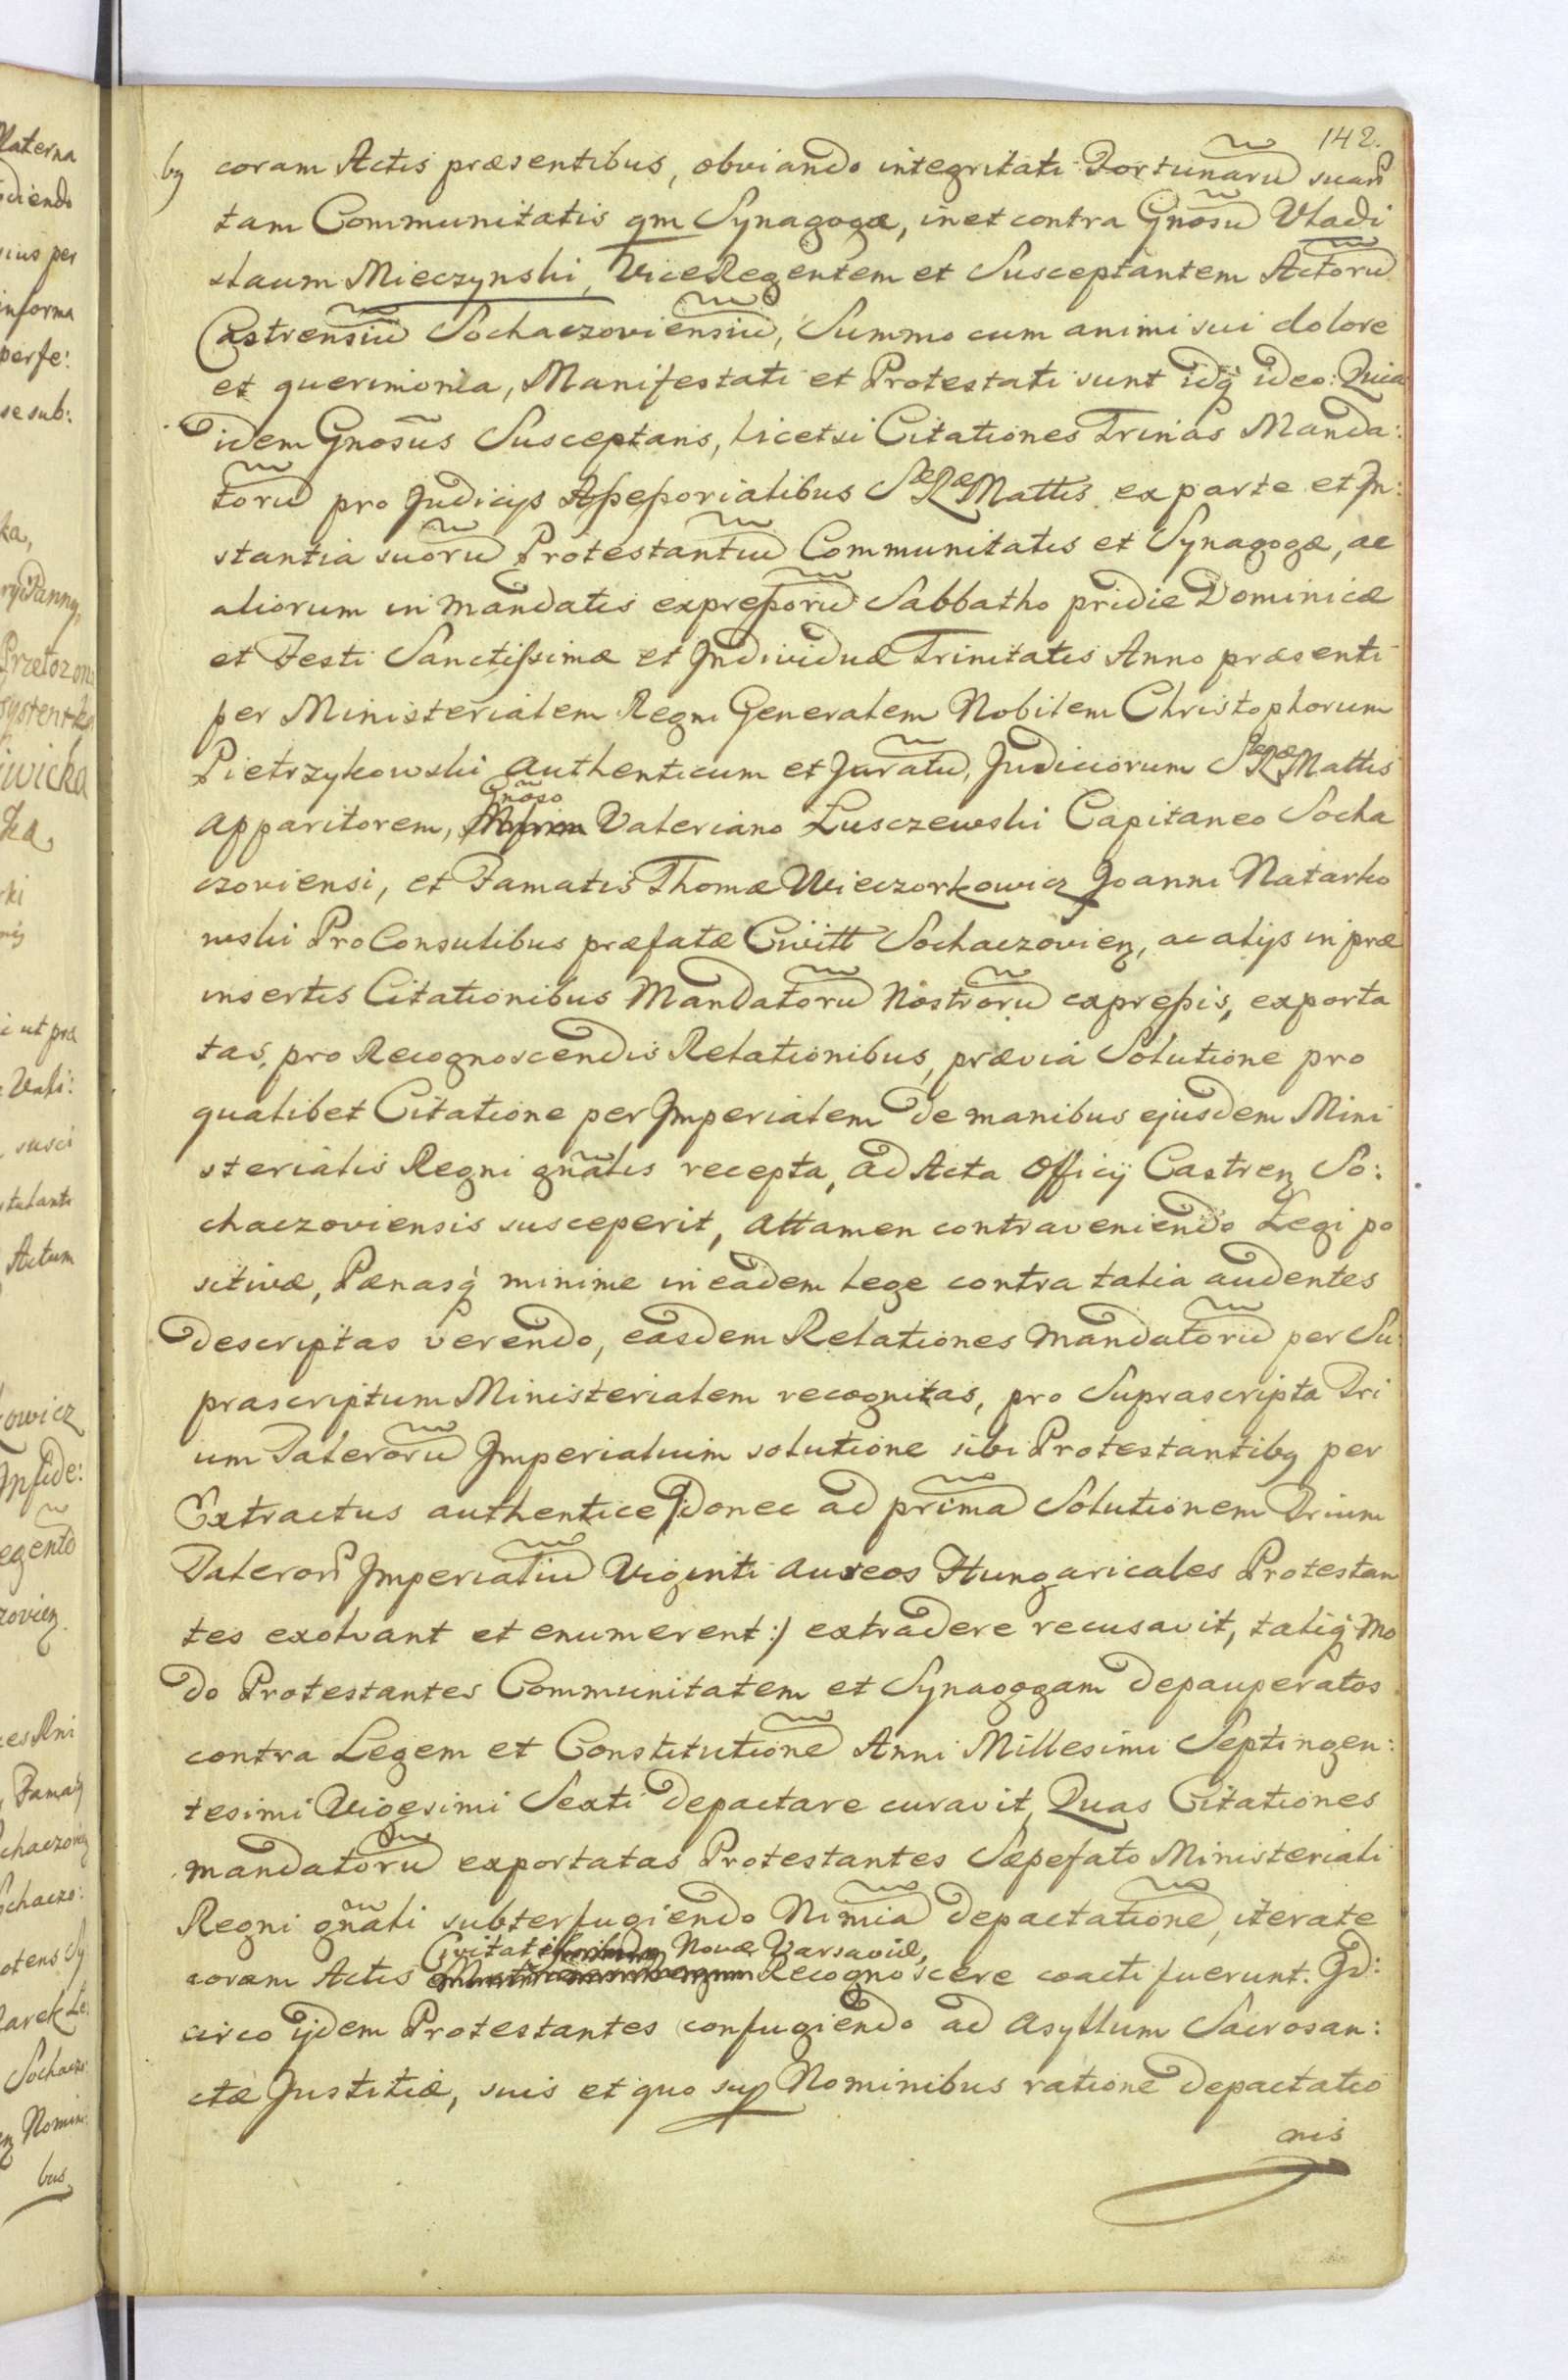 142.
by coram Actis præsentibus, obviando integritati Fortunarũ suarũ
tam Communitatis qm Synagogæ, in et contra Gnõsũ Vladi
slaum Mieczynski, ViceRegentem et Susceptantem Actorũ
Castrensiũ Sochaczoviensiũ, Summo cum animi sui dolore
et querimonia, Manifestati et Protestati sunt idq́ ideo: Quia
idem Gnosũs Susceptans, licetsi Citationes Trinas Manda:
torũ pro Judicijs Assessorialibus SæRæMattis ex parte et In:
stantia suorũ Protestantiũ Communitatis et Synagogæ, ac
aliorum in mandatis expressorũ Sabbatho pridie Dominicæ
et Festi Sanctissimæ et Individuæ Trinitatis Anno præsenti
per Ministerialem Regni Generalem Nobilem Christophorum
Pietrzykowski authenticum et Juratũ, Judiciorum SæRæMattis
Gnõso
apparitorem, Valeriano Łusczewski Capitaneo Socha
czoviensi, et Famatis Thomæ Wieczorkowicz Joanni Natarko
wski ProConsulibus præfatæ Civitt Sochaczovien, ac alijs in præ
insertis Citationibus Mandatorũ Nostrorũ expressis, exporta
tas, pro Recognoscendis Relationibus, prævia Solutione pro
qualibet Citatione per Imperialem de manibus ejusdem Mini
sterialis Regni gnãlis recepta, ad Acta Officij Castren So:
chaczoviensis susceperit, attamen contraveniendo Legi po
sitivæ, Pænasq́ minime in eadem lege contra talia audentes
descriptas verendo, easdem Relationes mandatorũ per Su
prascriptum Ministerialem recognitas, pro Suprascripta Tri
um Talerorũ Imperialium solutione sibi Protestantiby per
Extractus authentice /:donec ad primã Solutionem Trium
Talerorũ Imperialiũ Viginti aureos Hungaricales Protestan
tes exolvant et enumerent:/ extradere recusavit, taliq́ Mo
do Protestantes Communitatem et Synagogam depauperatos
contra Legem et Constitutionẽ Anni Millesimi Septingen:
tesimi Vigesimi Sexti depactare curavit, Quas Citationes
mandatorũ exportatas Protestantes Sæpefato Ministeriali
Regni gnãli subterfugiendo Nimiã depactationẽ, iterate
Civitatis Novæ Varsaviæ,
coram Actis Recognoscere coacti fuerunt. Id:
circo ijdem Protestantes confugiendo ad asyllum Sacrosan:
ctæ Justitiæ, suis et quo sup Nominibus ratione depactatio
nis